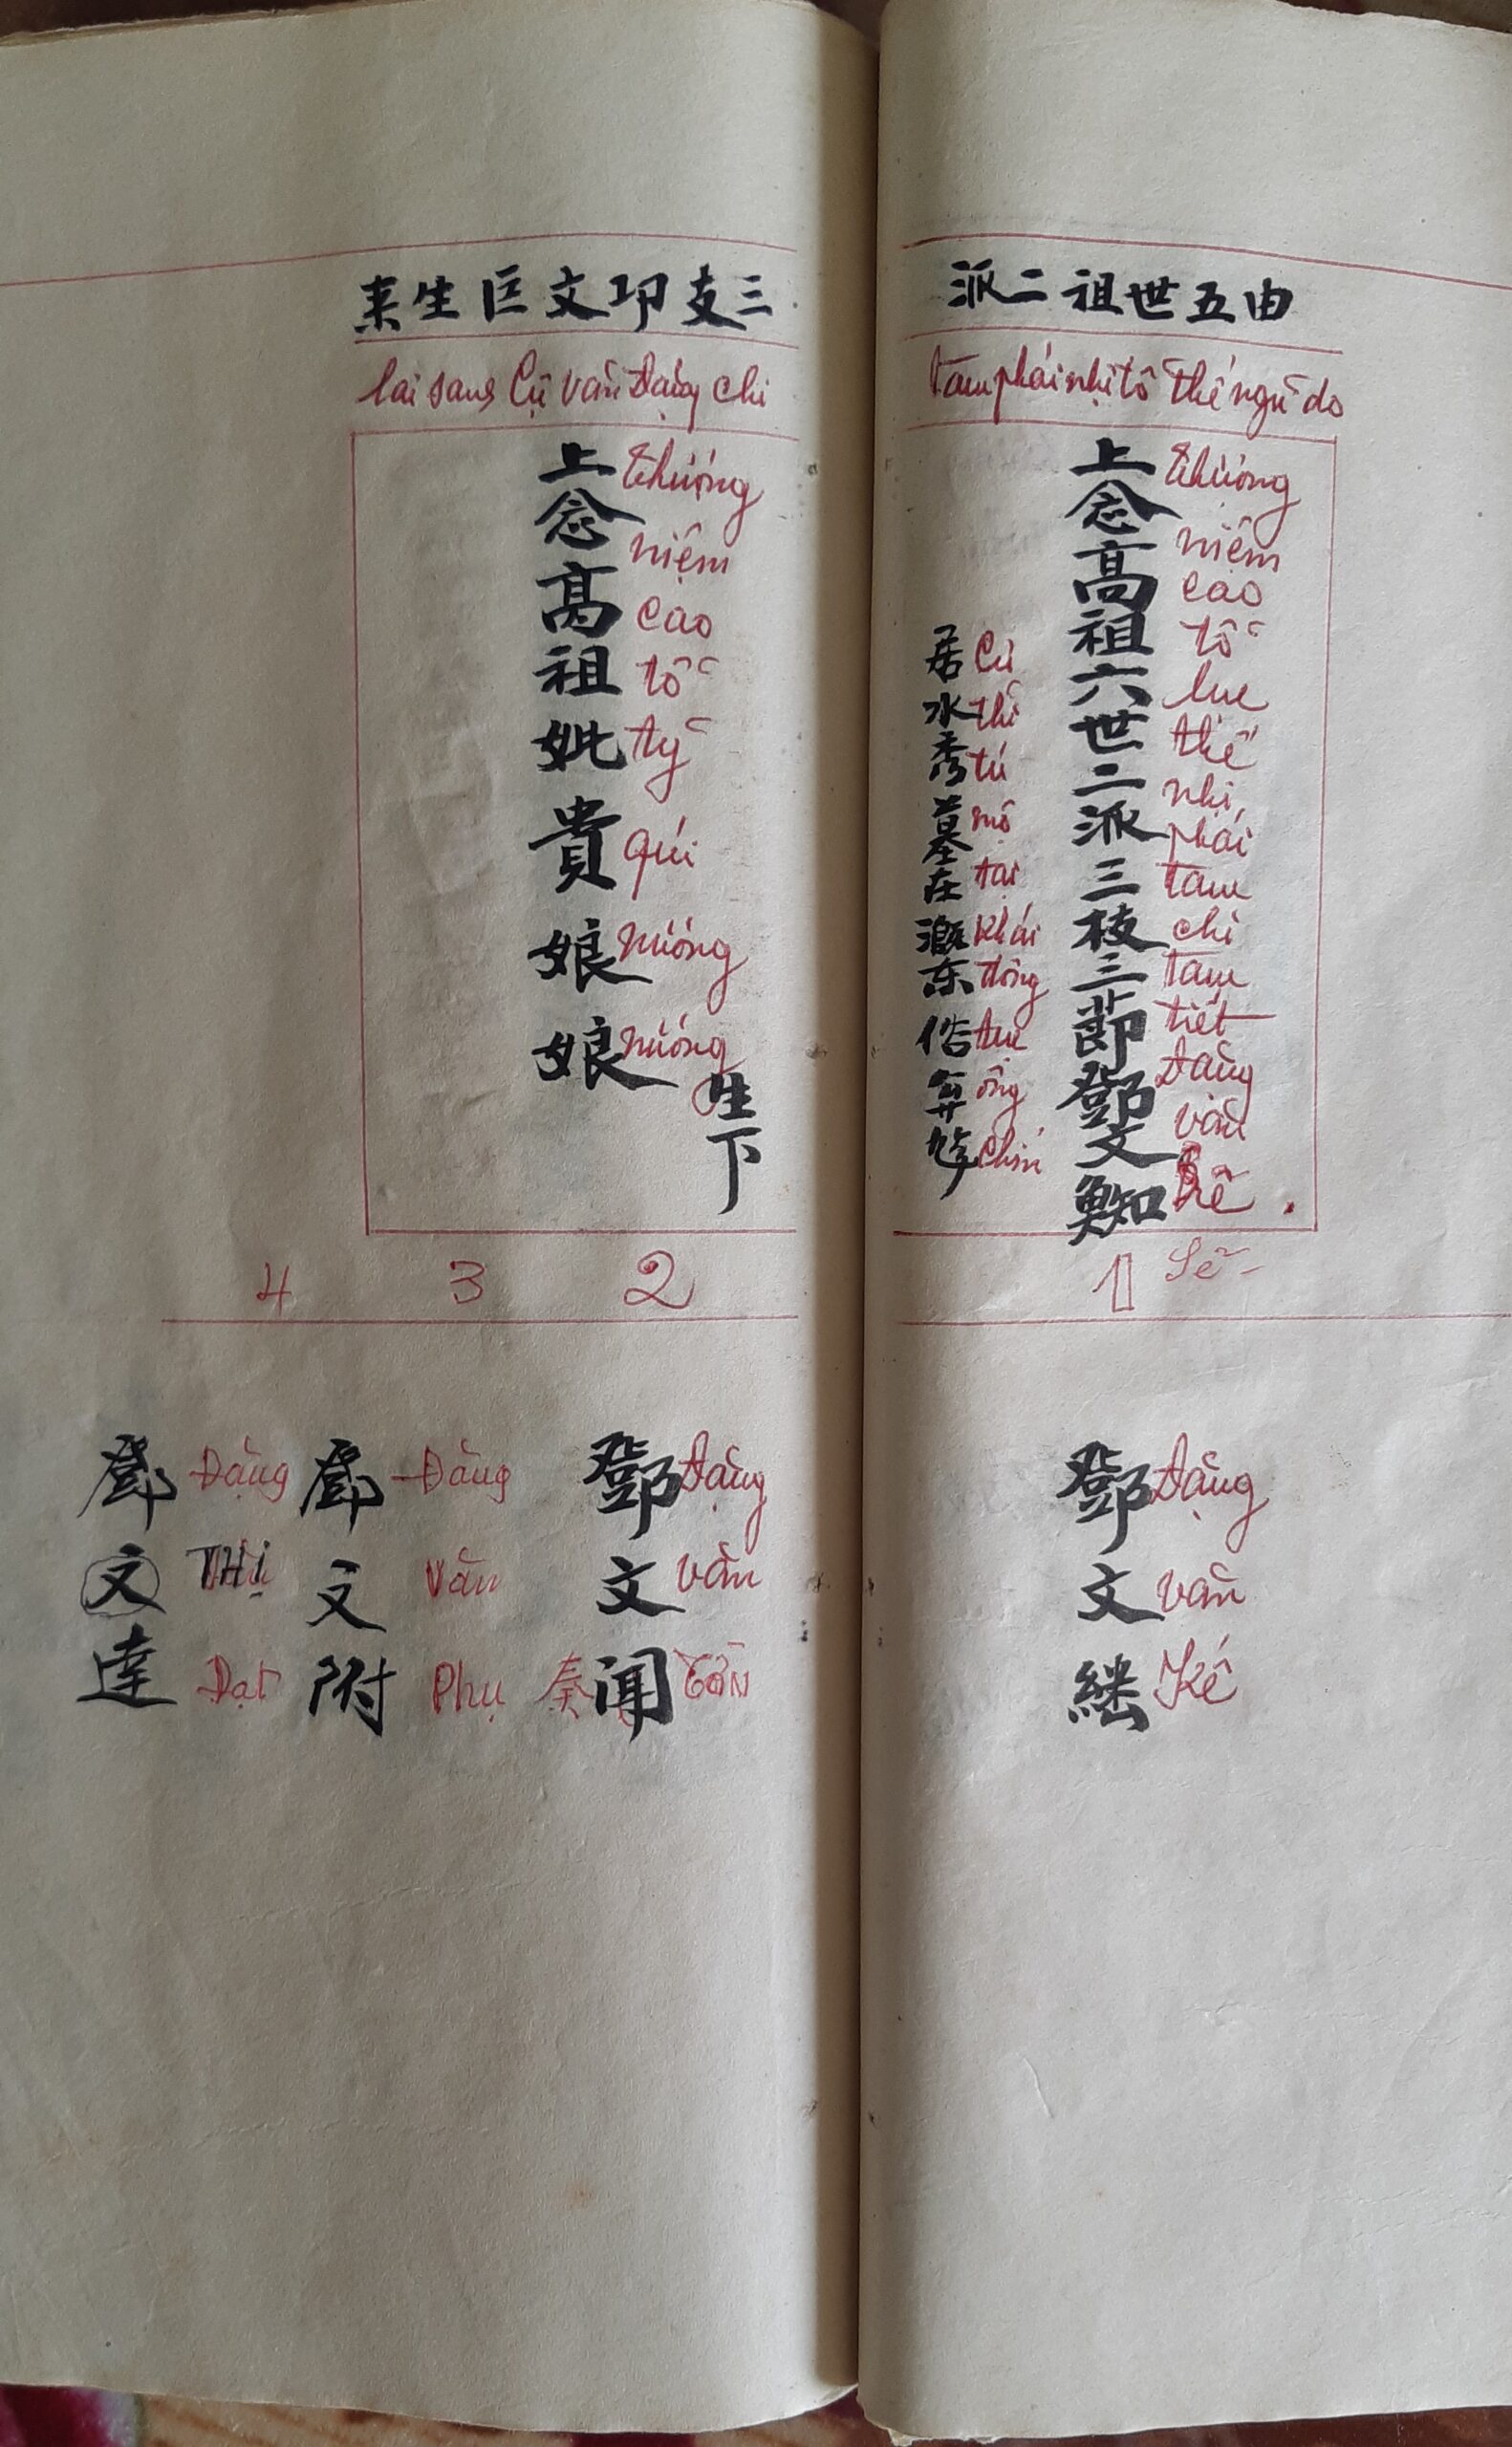 由五世祖二派
三支卭文巨生来
tam phái nhị tổ thế ngũ do
lai sang Cự văn Đặng chi
上念高祖六世二派三枝三節鄧文
thượng niệm cao tổ lục thế nhị phái tam chi tam tiết Đặng văn
居水秀墓在溉东
Cư thủ tú mộ tại khái đông tục ông chín
上念高祖妣貴娘娘
thượng niệm cao tổ tỷ quí nương nương
生下
1 Sẽ
2
3
4
鄧文継
Đặng văn Kế
鄧文闻
Đặng văn Tấn
奏
鄧文附
Đặng Văn Phụ
鄧文達
Đặng THỊ Đạt